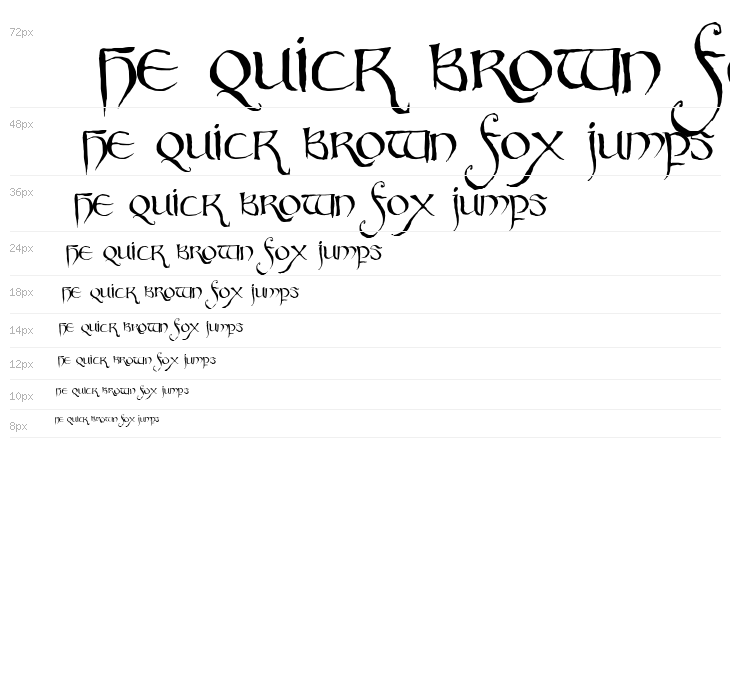 72px he quick brown fo
48px he quick brown fox jumps
36px he quick brown fox jumps
24px he quick brown fox jumps
18px he quick brown fox jumps
14px he quick brown fox jumps
12px he quick brown fox jumps
10px he quick brown fox jumps
8px he quick brown fox jumps